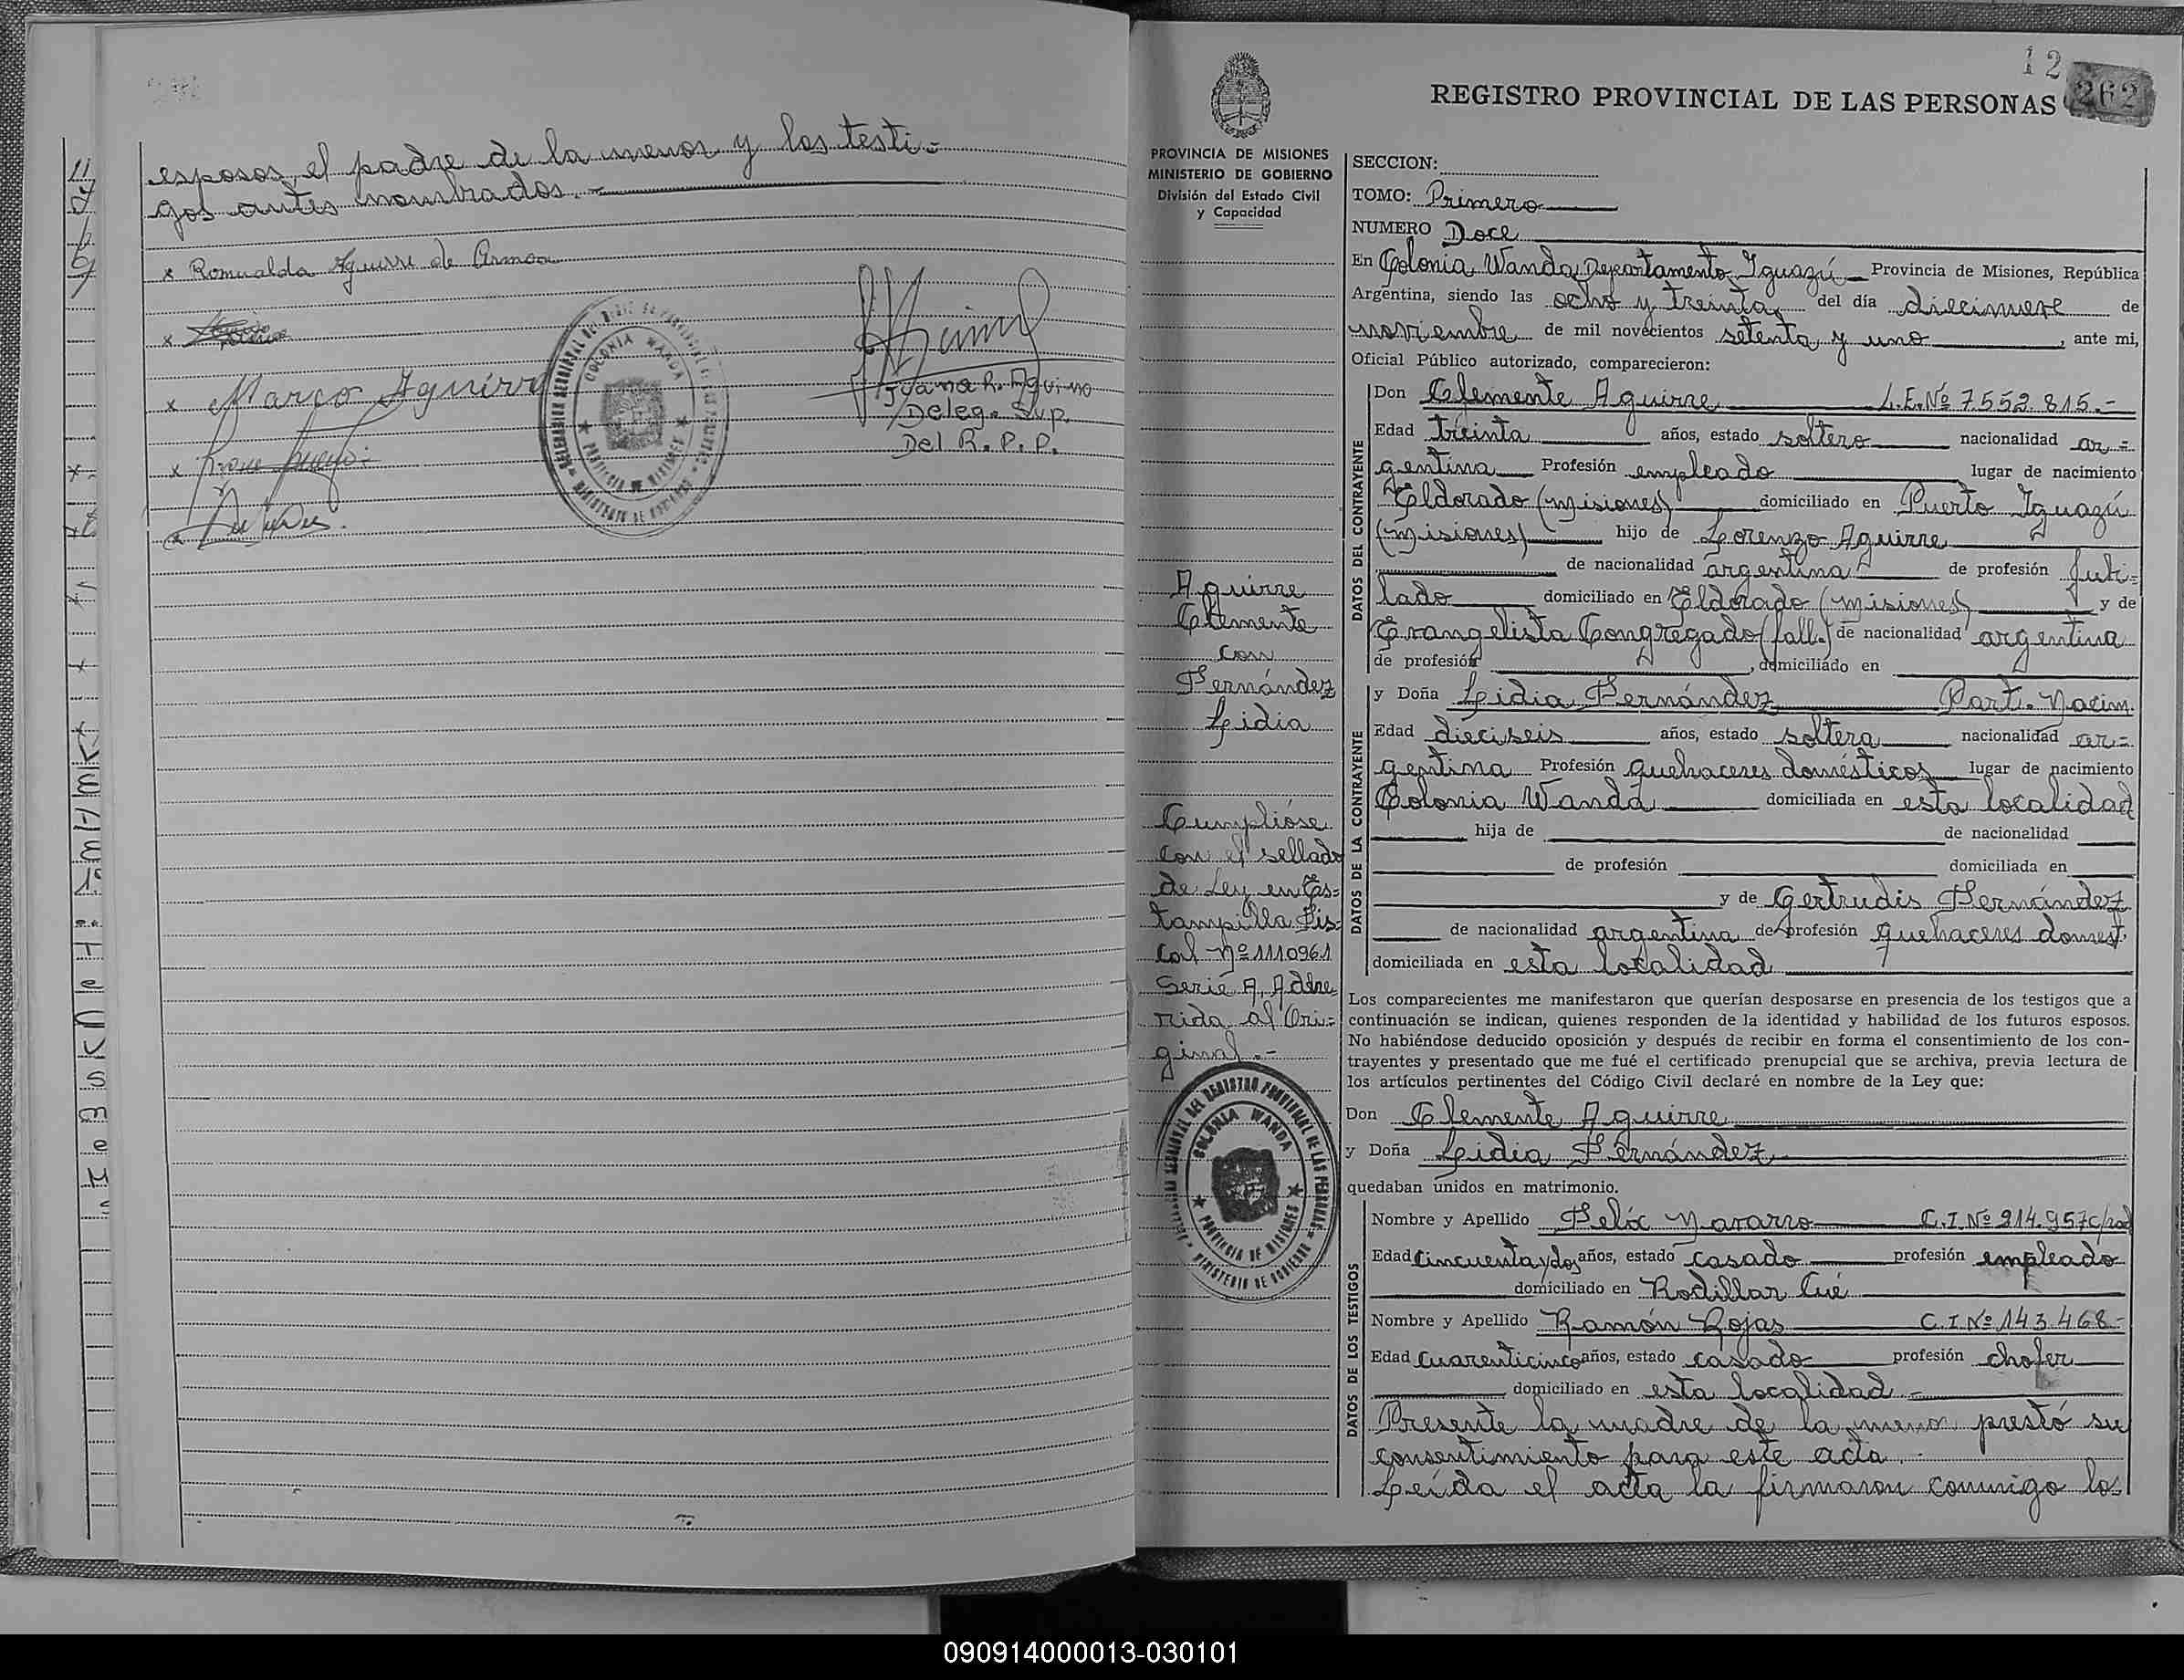 esposos, el padre de la menor y los testi=
gos antes nombrados.-
x Romualda Aguirre de Armoa
x
x Marco Aguirre
x
x
COLONIA WANDA
PROVINCIA DE MISIONES
MINISTERIO DE GOBIERNO
Juana R. Aquino
Deleg. Sup.
Del R. P. P.
12
262
REGISTRO PROVINCIAL DE LAS PERSONAS
PROVINCIA DE MISIONES
MINISTERIO DE GOBIERNO
División del Estado Civil
y Capacidad
Aguirre
Clemente
con
Fernández
Lidia
Cumplióse
con el sellado
de Ley en Es=
tampilla Fis=
cal Nº 1110961
Serie A, Adhe=
rida al Ori=
ginal.-
DELEGACION SECCIONAL DEL REGISTRO PROVINCIAL DE LAS PERSONAS
COLONIA WANDA
PROVINCIA DE MISIONES
MINISTERIO DE GOBIERNO
SECCION:
TOMO: Primero
NUMERO Doce
En Colonia Wanda, Departamento Iguazú Provincia de Misiones, República
Argentina, siendo las ocho y treinta, del día diecinueve de
noviembre de mil novecientos setenta y uno, ante mi,
Oficial Público autorizado, comparecieron:
DATOS DEL CONTRAYENTE
Don Clemente Aguirre L.E.Nº 7552.815.-
Edad treinta años, estado soltero nacionalidad ar=
gentina Profesión empleado lugar de nacimiento
Eldorado (Misiones) domiciliado en Puerto Iguazú
(Misiones) hijo de Lorenzo Aguirre
de nacionalidad argentina de profesión jubi=
lado domiciliado en Eldorado (Misiones) y de
Evangelista Congregado (fall.) de nacionalidad argentina
de profesión , domiciliado en
DATOS DE LA CONTRAYENTE
y Doña Lidia Fernández Part. Nacim.
Edad dieciseis años, estado soltera nacionalidad ar=
gentina Profesión quehaceres domésticos lugar de nacimiento
Colonia Wanda domiciliada en esta localidad
hija de de nacionalidad
de profesión domiciliada en
y de Gertrudis Fernández
de nacionalidad argentina de profesión quehaceres domest.
domiciliada en esta localidad
Los comparecientes me manifestaron que querían desposarse en presencia de los testigos que a
continuación se indican, quienes responden de la identidad y habilidad de los futuros esposos.
No habiéndose deducido oposición y después de recibir en forma el consentimiento de los con-
trayentes y presentado que me fué el certificado prenupcial que se archiva, previa lectura de
los artículos pertinentes del Código Civil declaré en nombre de la Ley que:
Don Clemente Aguirre
y Doña Lidia Fernández
quedaban unidos en matrimonio.
DATOS DE LOS TESTIGOS
Nombre y Apellido Felix Navarro C.I.Nº 214.957
Edad Cincuenta y dos años, estado casado profesión empleado
domiciliado en Rodillar Cué
Nombre y Apellido Ramón Rojas C.I.Nº 143.468-
Edad Cuarenticinco años, estado casado profesión chofer
domiciliado en esta localidad.-
Presente la madre de la menor prestó su
consentimiento para este acta.-
Leída el acta la firmaron conmigo los
090914000013-030101